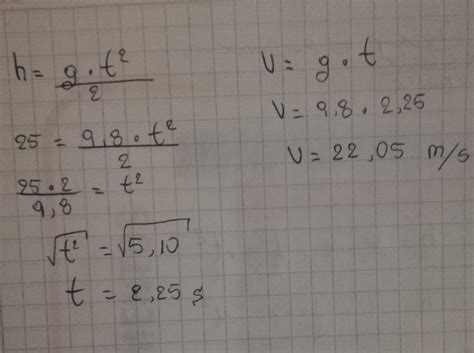 h = g · t² / 2
25 = 9,8 · t² / 2
25 · 2 / 9,8 = t²
√t² = √5,10
t = 2,25 s
V = g · t
V = 9,8 · 2,25
V = 22,05 m/s